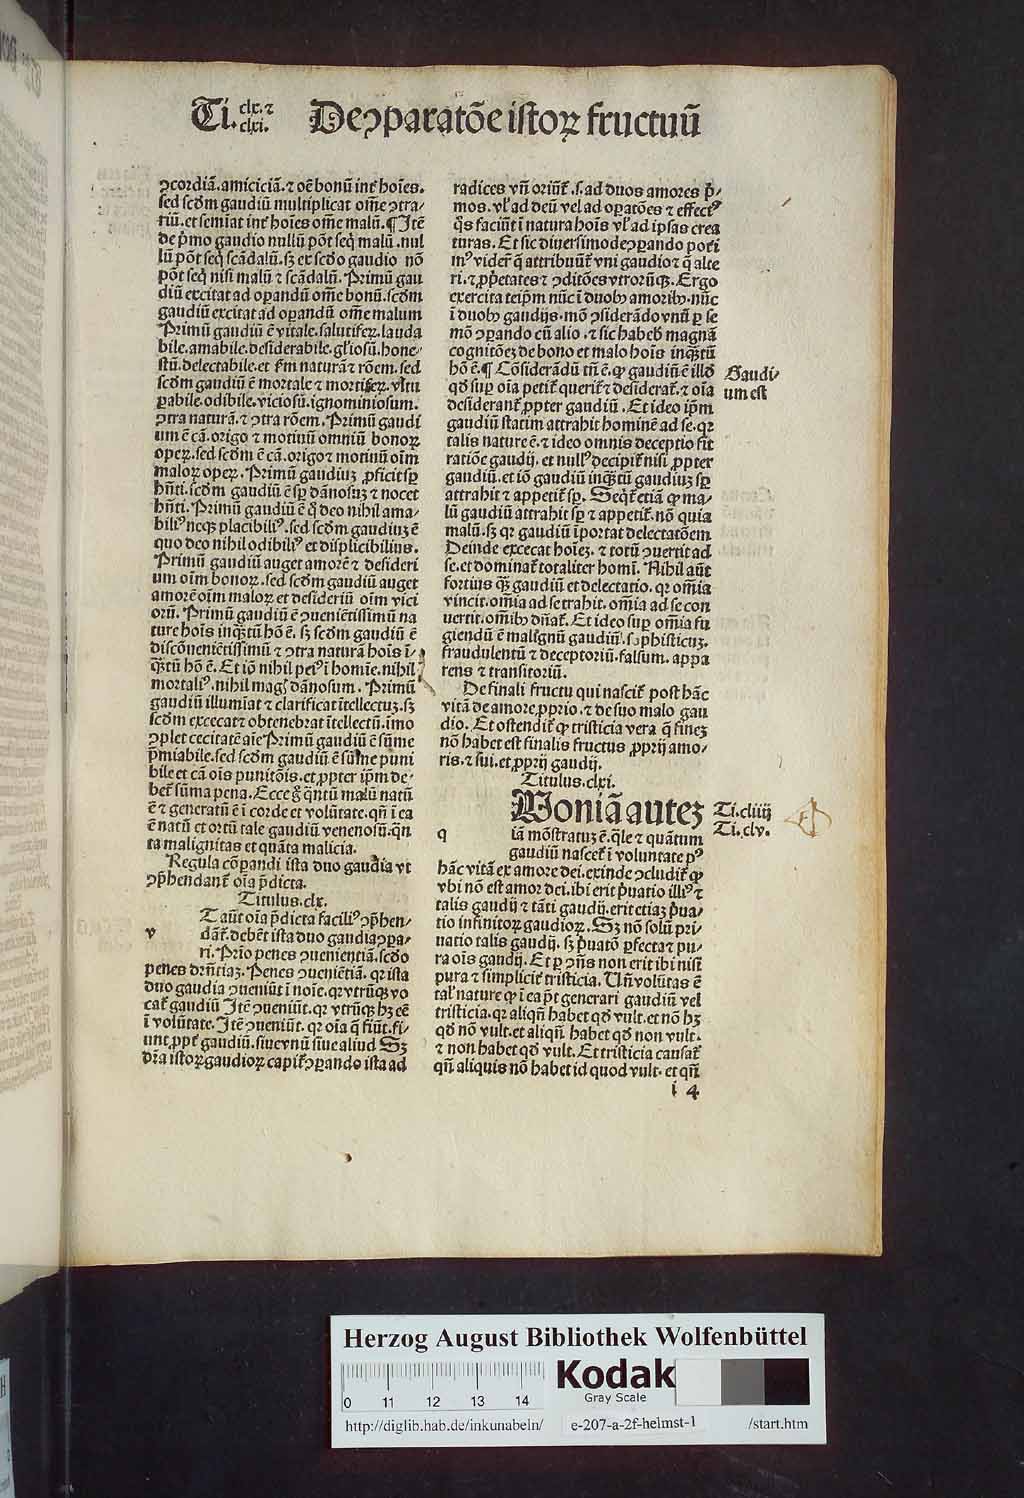 Ti. clx. ⁊
clxi.
De ↄparatõe istoꝝ fructuũ
ↄcordiã. amiciciã. ⁊ oẽ bonũ int̃ hoĩes.
sed scd̃m gaudiũ multiplicat om̃e ↄtra-
riũ. et semĩat int̃ hoĩes om̃e malũ. ¶ Itẽ
de p̃mo gaudio nullũ põt seq̃ malũ. nul
lũ põt seq̃ scãdalũ. sꝫ et scd̃o gaudio nõ
põt seq̃ nisi malũ ⁊ scãdalũ. Primũ gau
diũ excitat ad oꝑandũ om̃e bonũ. scd̃m
gaudiũ excitat ad oꝑandũ om̃e malum
Primũ gaudiũ ẽ vitale. salutifeꝝ. lauda
bile. amabile. desiderabile. gl̃iosũ. hone-
stũ. delectabile. et ẜm naturã ⁊ rõem. sed
scd̃m gaudiũ ẽ mortale ⁊ mortifeꝝ. vitu
ꝑabile. odibile. viciosũ. ignominiosum.
ↄtra naturã. ⁊ ↄtra rõem. Primũ gaudi
um ẽ cã. origo ⁊ motiuũ omniũ bonoꝝ
opeꝝ. sed scd̃m ẽ cã. origo ⁊ motiuũ oĩm
maloꝝ opeꝝ. Primũ gaudiuꝫ ꝓficit sꝑ
hñti. scd̃m gaudiũ ẽ sꝑ dãnosuꝫ ⁊ nocet
hñti. Primũ gaudiũ ẽ q̊ deo nihil ama-
biliꝰ neqꝫ placibiliꝰ. sed scd̃m gaudiuꝫ ẽ
quo deo nihil odibiliꝰ et displicibilius.
Primũ gaudiũ auget amorẽ ⁊ desideri
um oĩm bonoꝝ. sed scd̃m gaudiũ auget
amorẽ oĩm maloꝝ et desideriũ oĩm vici
orũ. Primũ gaudiũ ẽ ↄueniẽtissimũ na
ture hoĩs inqꝫtũ hõ ẽ. sꝫ scd̃m gaudiũ ẽ
discõuenientissimũ ⁊ ↄtra naturã hoĩs ĩ-
qꝫtũ hõ ẽ. Et iõ nihil peiꝰ ĩ homĩe. nihil
mortaliꝰ. nihil mag̃ dãnosum. Primũ
gaudiũ illumĩat ⁊ clarificat ĩtellectuꝫ. sꝫ
scd̃m excecat ⁊ obtenebrat ĩtellectũ. ĩmo
ↄplet cecitatẽ aĩe Primũ gaudiũ ẽ sũme
p̃miabile. sed scd̃m gaudiũ ẽ sũme puni
bile et cã oĩs punitõis. et ꝓpter ip̃m de-
bet̃ sũma pena. Ecce g̊ q̃ntũ malũ natũ
ẽ ⁊ generatũ ẽ ĩ corde et volũtate. qñ ĩ ea
ẽ natũ et ortũ tale gaudiũ venenosũ. q̃n
ta malignitas et quãta malicia.
Regula cõꝑandi ista duo gaudia vt
ↄp̃hendant̃ oĩa p̃dicta.
Titulus. clx.
v
T aũt oĩa p̃dicta faciliꝰ ↄp̃hen-
dãt̃. debẽt ista duo gaudia ↄꝑa-
ri. Prĩo penes ↄuenientiã. scd̃o
penes dr̃ñtiaꝫ. Penes ↄueniẽtiã. qꝛ ista
duo gaudia ↄueniũt ĩ noĩe. qꝛ vtrũqꝫ vo
cat̃ gaudiũ Itẽ ↄueniũt. qꝛ vtrũqꝫ hꝫ eẽ
ĩ volũtate. Itẽ ↄueniũt. qꝛ oĩa q̃ fiũt. fi-
unt ꝓpt̃ gaudiũ. siue vnũ siue aliud Sꝫ
dr̃ia istoꝝ gaudioꝝ capit̃ ↄꝑando ista ad
radices vñ oriũt̃. s. ad duos amores p̃-
mos. vl̃ ad deũ vel ad oꝑatões ⁊ effectꝰ
q̃s faciũt ĩ natura hoĩs vl̃ ad ipsas crea
turas. Et sic diuersimode ↄꝑando poti
mꝰ vider̃ q̃ attribuũt̃ vni gaudio ⁊ q̃ alte
ri. ⁊ ꝓp̃etates ⁊ ↄditões vtrorũqꝫ. Ergo
exercita teip̃m nũc ĩ duobꝰ amoribꝰ. nũc
ĩ duobꝰ gaudijs. mõ ↄsiderãdo vnũ ꝑ se
mõ ↄꝑando cũ alio. ⁊ sic habebꝭ magnã
cognitõeꝫ de bono et malo hoĩs inqꝫtũ
hõ ẽ. ¶ Cõsiderãdũ tñ ẽ. ꝙ gaudiũ ẽ illd̃
qd̃ suꝑ oĩa petit̃ querit̃ ⁊ desiderat̃. ⁊ oĩa
desiderant̃ ꝓpter gaudiũ. Et ideo ip̃m
gaudiũ statim attrahit hominẽ ad se. qꝛ
talis nature ẽ. ⁊ ideo omnis deceptio fit
ratiõe gaudij. et nullꝰ decipit̃ nisi ꝓpter
gaudiũ. et iõ gaudiũ inqꝫtũ gaudiuꝫ sꝑ
attrahit ⁊ appetit̃ sꝑ. Seqt̃ etiã ꝙ ma-
lũ gaudiũ attrahit sꝑ ⁊ appetit̃. nõ quia
malũ. sꝫ qꝛ gaudiũ ĩportat delectatõem
Deinde excecat hoĩeꝫ. ⁊ totũ ↄuertit ad
se. et dominat̃ totaliter homĩ. Nihil aũt
fortius qꝫ gaudiũ et delectatio. qꝛ om̃ia
vincit. om̃ia ad se trahit. om̃ia ad se con
uertit. om̃ibꝰ dñat̃. Et ideo suꝑ om̃ia fu
giendũ ẽ malignũ gaudiũ. sophisticuꝫ.
fraudulentũ ⁊ deceptoriũ. falsum. appa
rens ⁊ transitoriũ.
De finali fructu qui nascit̃ post hãc
vitã de amore ꝓprio. ⁊ de suo malo gau
dio. Et ostendit̃ ꝙ tristicia vera q̃ fineꝫ
nõ habet est finalis fructus ꝓprij amo-
ris. ⁊ sui. et ꝓprij gaudij.
Titulus. clxi.
q
Voniã auteꝫ
iã mõstratuꝫ ẽ. q̃le ⁊ quãtum
gaudiũ nascet̃ ĩ voluntate pꝰ
hãc vitã ex amore dei. exinde ↄcludit̃ ꝙ
vbi nõ est amor dei. ibi erit p̃uatio illiꝰ ⁊
talis gaudij ⁊ tãti gaudij. erit etiaꝫ p̃ua-
tio infinitoꝝ gaudioꝝ. Sꝫ nõ solũ pri-
uatio talis gaudij. sꝫ p̃uatõ ꝑfecta ⁊ pu-
ra oĩs gaudij. Et ꝑ ↄñs non erit ibi nisi
pura ⁊ simplicit̃ tristicia. Uñ volũtas ẽ
tal̃ nature ꝙ ĩ ea põt generari gaudiũ vel
tristicia. qꝛ aliqñ habet qd̃ vult. et nõ hꝫ
qd̃ nõ vult. et aliqñ habet qd̃ non vult.
⁊ non habet qd̃ vult. Et tristicia causat̃
qñ aliquis nõ habet id quod vult. et qñ
i 4
Gaudi-
um est
Ti. cliiij
Ti. clv.
Herzog August Bibliothek Wolfenbüttel
0 11 12 13 14
Kodak
Gray Scale
http://diglib.hab.de/inkunabeln/ e-207-a-2f-helmst-1 /start.htm